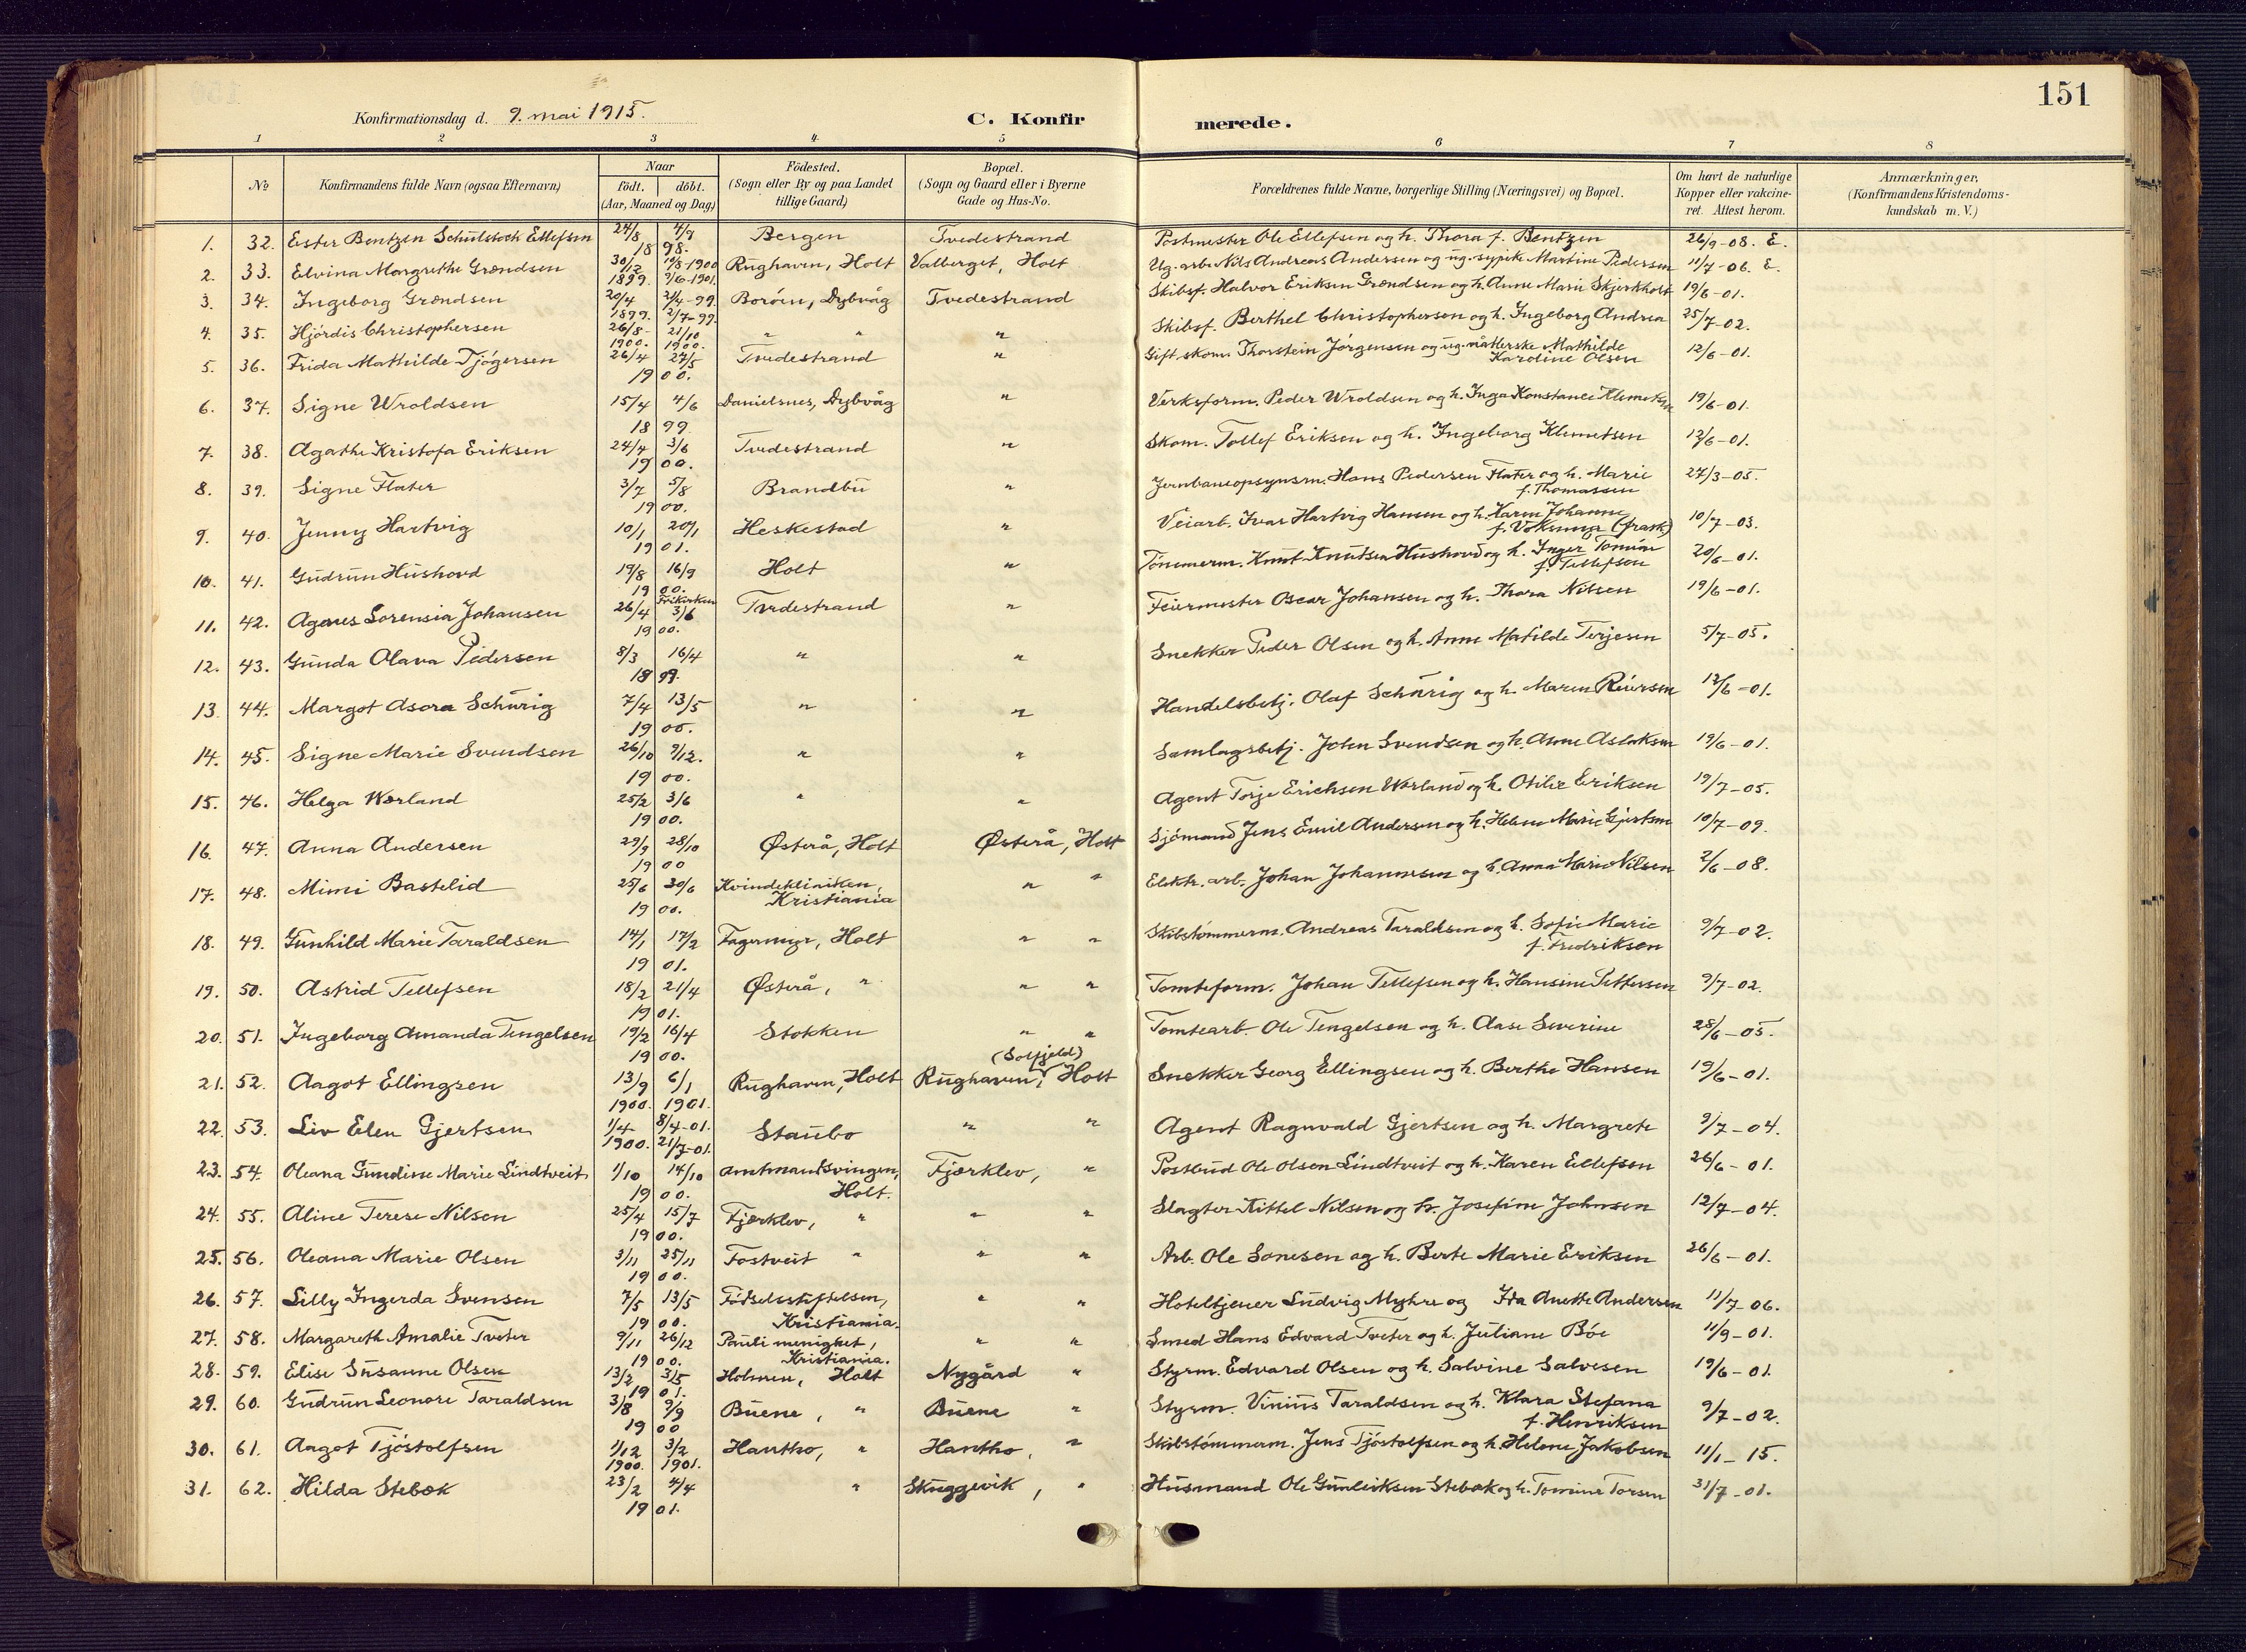 151
Konfirmationsdag d. 9. mai 1915.
C. Konfirmerede.
1 2 3 4 5 6 7 8
№
Konfirmandens fulde Navn (ogsaa Efternavn)
Naar
födt. döbt.
(Aar, Maaned og Dag)
Födested.
(Sogn eller By og paa Landet
tillige Gaard)
Bopæl.
(Sogn og Gaard eller i Byerne
Gade og Hus-No.
Forældrenes fulde Navne, borgerlige Stilling (Næringsvei) og Bopæl.
Om havt de naturlige
Kopper eller vakcine-
ret. Attest herom.
Anmærkninger.
(Konfirmandens Kristendoms-
kundskab m. V.)
1. 32. Ester Bentzen Schulstock Ellefsen 24/8 4/9 1898. Bergen Tvedestrand Postmester Ole Ellefsen og h. Thora f. Bentzen 26/9-08. E.
2. 33. Elvina Margrethe Grændsen 30/12 1899. 19/8-1900 9/6-1901. Rughaven, Holt Valberget, Holt Ug. arb. Nils Andreas Andersen og ug. sypike Martine Pedersen 11/7-06. E.
3. 34. Ingeborg Grændsen 20/4 1899. 21/4-99. 2/7-99. Borøen, Dybvåg Tvedestrand Skibsf. Halvor Eriksen Grændsen og h. Anne Marie Skjerkholt 19/6-01.
4. 35. Hjördis Christophersen 26/8- 1900. 21/10 1900. " " " Skibsf. Berthel Christophersen og h. Ingeborg Andrea 25/7-02.
5. 36. Frida Mathilde Tjögersen 26/4 27/5 1900. Tvedestrand " Gift skom. Thorstein Jörgensen og ug. Mathilde
Karoline Olsen 12/6-01.
6. 37. Signe Wroldsen 15/4 4/6 1899. Danielsnes, Dybvåg " Verksform. Peder Wroldsen og h. Inga Konstance Klemetsen 19/6-01.
7. 38. Agathe Kristofa Eriksen 24/4 3/6 1900. Tvedestrand " Skom. Tollef Eriksen og h. Ingeborg Klemetsen 12/6-01.
8. 39. Signe Flater 3/7 5/8 1900. Brandbu " Jernbaneopsynsm. Hans Pedersen Flater og h. Marie
f. Thomassen 27/3-05.
9. 40. Jenny Hartvig 10/1 20/1 1901. Heskestad " Veiarb. Ivar Hartvig Hansen og h. Karen Johanne
10/7-03.
10. 41. Gudrun Hushovd 19/8 16/9 1900. Holt " Tömmerm. Knut Knutsen Hushovd og h. Inger Tomine
f. Tellefsen 20/6-01.
11. 42. Agnes Sorensia Johansen 26/4 Frikirken 3/6 1900. Tvedestrand " Feiermester Oscar Johansen og h. Thora Nilsen 19/6-01.
12. 43. Gunda Olava Pedersen 8/3 16/4 1899. " " Snekker Peder Olsen og h. Anne Matilde Terjesen 5/7-05.
13. 44. Margot Asora Schürig 7/4 13/5 1900. " " Handelsbetj. Olaf Schürig og h. Maren Reiersen 12/6-01.
14. 45. Signe Marie Svendsen 26/10 9/12. 1900. " " Samlagsbetj. John Svendsen og h. Anne Aslaksen 19/6-01.
15. 46. Helga Wærland 25/2 3/6 1900. " " Agent Torje Erichsen Wærland og h. Otilie Eriksen 19/7-05.
16. 47. Anna Andersen 29/9 28/10 1900 Østerå, Holt Østerå, Holt Sjömand Jens Emil Andersen og h. Helene Marie Gjertsen 10/7-09.
17. 48. Mimi Bastelid 25/6 30/6 1900. Kvindekliniken,
Kristiania " " Elektr. arb. Johan Johannesen og h. Anna Marie Nilsen 2/6-08.
18. 49. Gunhild Marie Taraldsen 14/1 17/2 1901. Fagermyr, Holt " " Skibstömmerm. Andreas Taraldsen og h. Sofie Marie
f. Fredriksen 9/7-02.
19. 50. Astrid Tellefsen 18/2 21/4 1901. Østerå, " " " Tomteform. Johan Tellefsen og h. Hansine Pettersen 9/7-02.
20. 51. Ingeborg Amanda Tengelsen 19/2 16/4 1900. Stokken " " Tomtearb. Ole Tengelsen og h. Aase Severine 28/6-05.
21. 52. Aagot Ellingsen 13/9 1900. 6/1 1901. Rughaven, Holt Rughaven, (Solfjeld) Holt Snekker Georg Ellingsen og h. Berthe Hansen 19/6-01.
22. 53. Liv Elen Gjertsen 1/4 1900. 8/4-01. 21/7-01. Staubo " " Agent Ragnvald Gjertsen og h. Margrete 9/7-04.
23. 54. Oleana Gundine Marie Lindtveit 1/10 14/10 1900. Amtmandsvingen,
Holt. Fjærklev, " Postbud Ole Olsen Lindtveit og h. Karen Ellefsen 26/6-01.
24. 55. Aline Terese Nilsen 25/4 15/7 1900. Fjærklev, " " " Slagter Kittel Nilsen og h. Josefine Johnsen 12/7-04.
25. 56. Oleana Marie Olsen 3/11 25/11 1900. Fostveit " " " Arb. Ole Sonesen og h. Berte Marie Eriksen 26/6-01.
26. 57. Lilly Ingerda Svensen 7/5 13/5 1900. Födselsstiftelsen,
Kristiania. " " Hoteltjener Ludvig Myhre og Ida Anette Andersen 11/7-06.
27. 58. Margareth Amalie Tveter 9/11 26/12 1900. Pauli menighet,
Kristiania. " " Smed Hans Edvard Tveter og h. Juliane Böe 11/9-01.
28. 59. Elise Susanne Olsen 13/2 3/5 1901. Holmen, Holt Nygård " Styrm. Edvard Olsen og h. Salvine Salvesen 19/6-01.
29. 60. Gudrun Leonore Taraldsen 3/8 9/9 1900 Buene, " Buene " Styrm. Vinius Taraldsen og h. Klara Stefana
f. Henriksen 9/7-02.
30. 61. Aagot Tjöstolfsen 1/12 1900. 3/2 1901. Hantho, " Hantho, " Skibstömmerm. Jens Tjöstolfsen og h. Helene Jakobsen 11/1-15.
31. 62. Hilda Stebæk 23/2 4/4 1901. " Skuggevik, " Husmand Ole Gunleiksen Stebæk og h. Tomine Torsen 31/7-01.